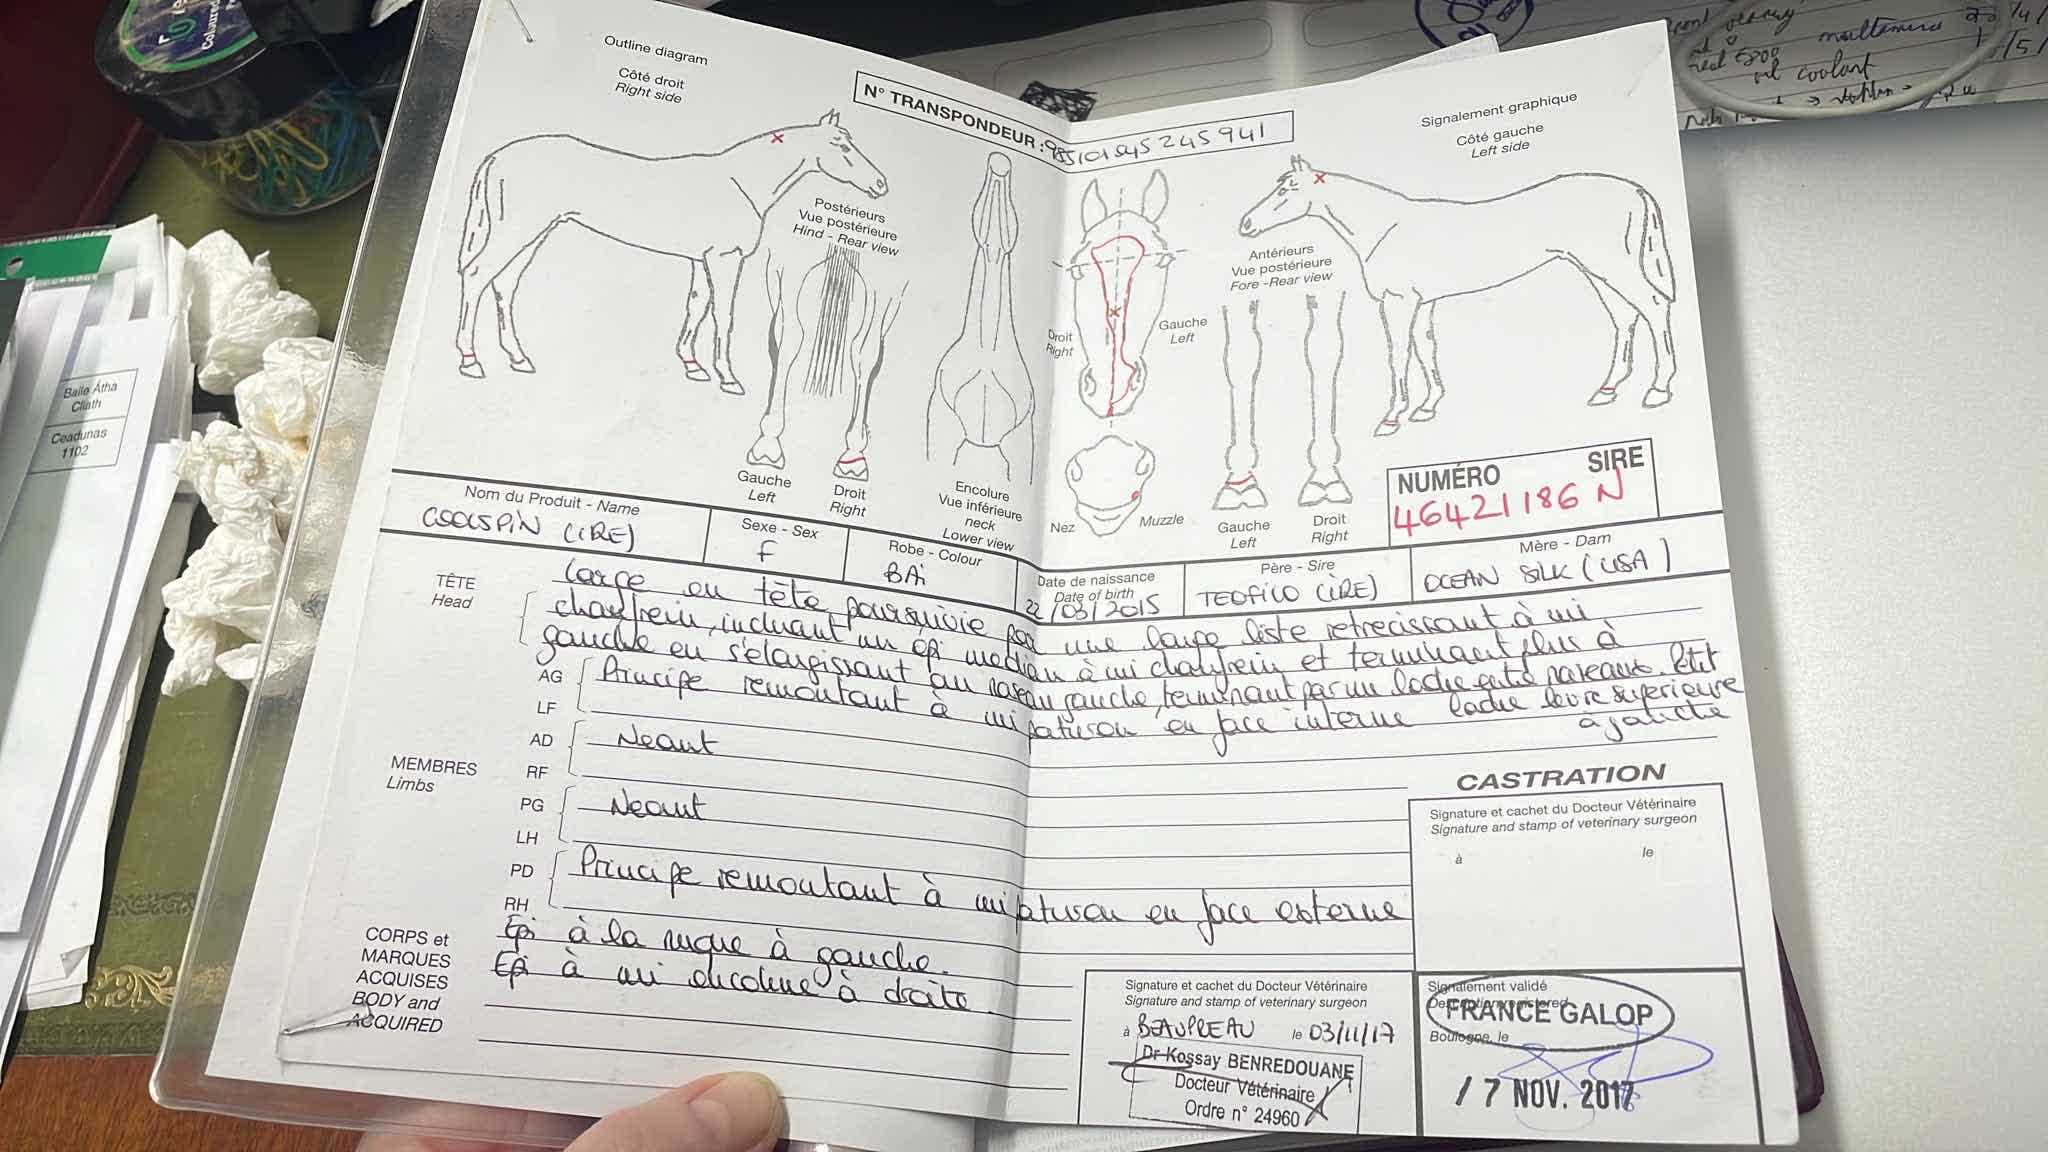 Outline diagram
Côté droit
Right side
N° TRANSPONDEUR : 985101045245941
Signalement graphique
Côté gauche
Left side
Postérieurs
Vue postérieure
Hind - Rear view
Antérieurs
Vue postérieure
Fore -Rear view
Droit
Right
Gauche
Left
Gauche
Left
Droit
Right
Encolure
Vue inférieure
neck
Lower view
Nez
Muzzle
Gauche
Left
Droit
Right
NUMÉRO SIRE
46421186 N
Nom du Produit - Name
COOLSPIN (IRE)
Sexe - Sex
F
Robe - Colour
BAi
Date de naissance
Date of birth
22/03/2015
Père - Sire
TEOFILO (IRE)
Mère - Dam
OCEAN SILK (USA)
TÊTE
Head
Large en tête poursuivie par une large liste retrecissant à mi
chanfrein, incluant un epi median à mi chanfrein et terminant plus à
gauche en s'elargissant au naseau gauche, terminant par un ladre entre naseaux. Petit
ladre levre superieure
à gauche
AG
LF
Principe remontant à mi paturon en face interne
AD
RF
Neant
MEMBRES
Limbs
PG
LH
Neant
PD
RH
Principe remontant à mi paturon en face externe
CORPS et
MARQUES
ACQUISES
BODY and
ACQUIRED
Epi à la nuque à gauche.
Epi à mi encolure à droite.
CASTRATION
Signature et cachet du Docteur Vétérinaire
Signature and stamp of veterinary surgeon
à le
Signature et cachet du Docteur Vétérinaire
Signature and stamp of veterinary surgeon
à BEAUPREAU le 03/11/17
Dr Kossay BENREDOUANE
Docteur Vétérinaire
Ordre n° 24960
Signalement validé
Description registered
FRANCE GALOP
Boulogne, le
17 NOV. 2017
Baile Átha
Cliath
Ceadúnas
1102
coolant